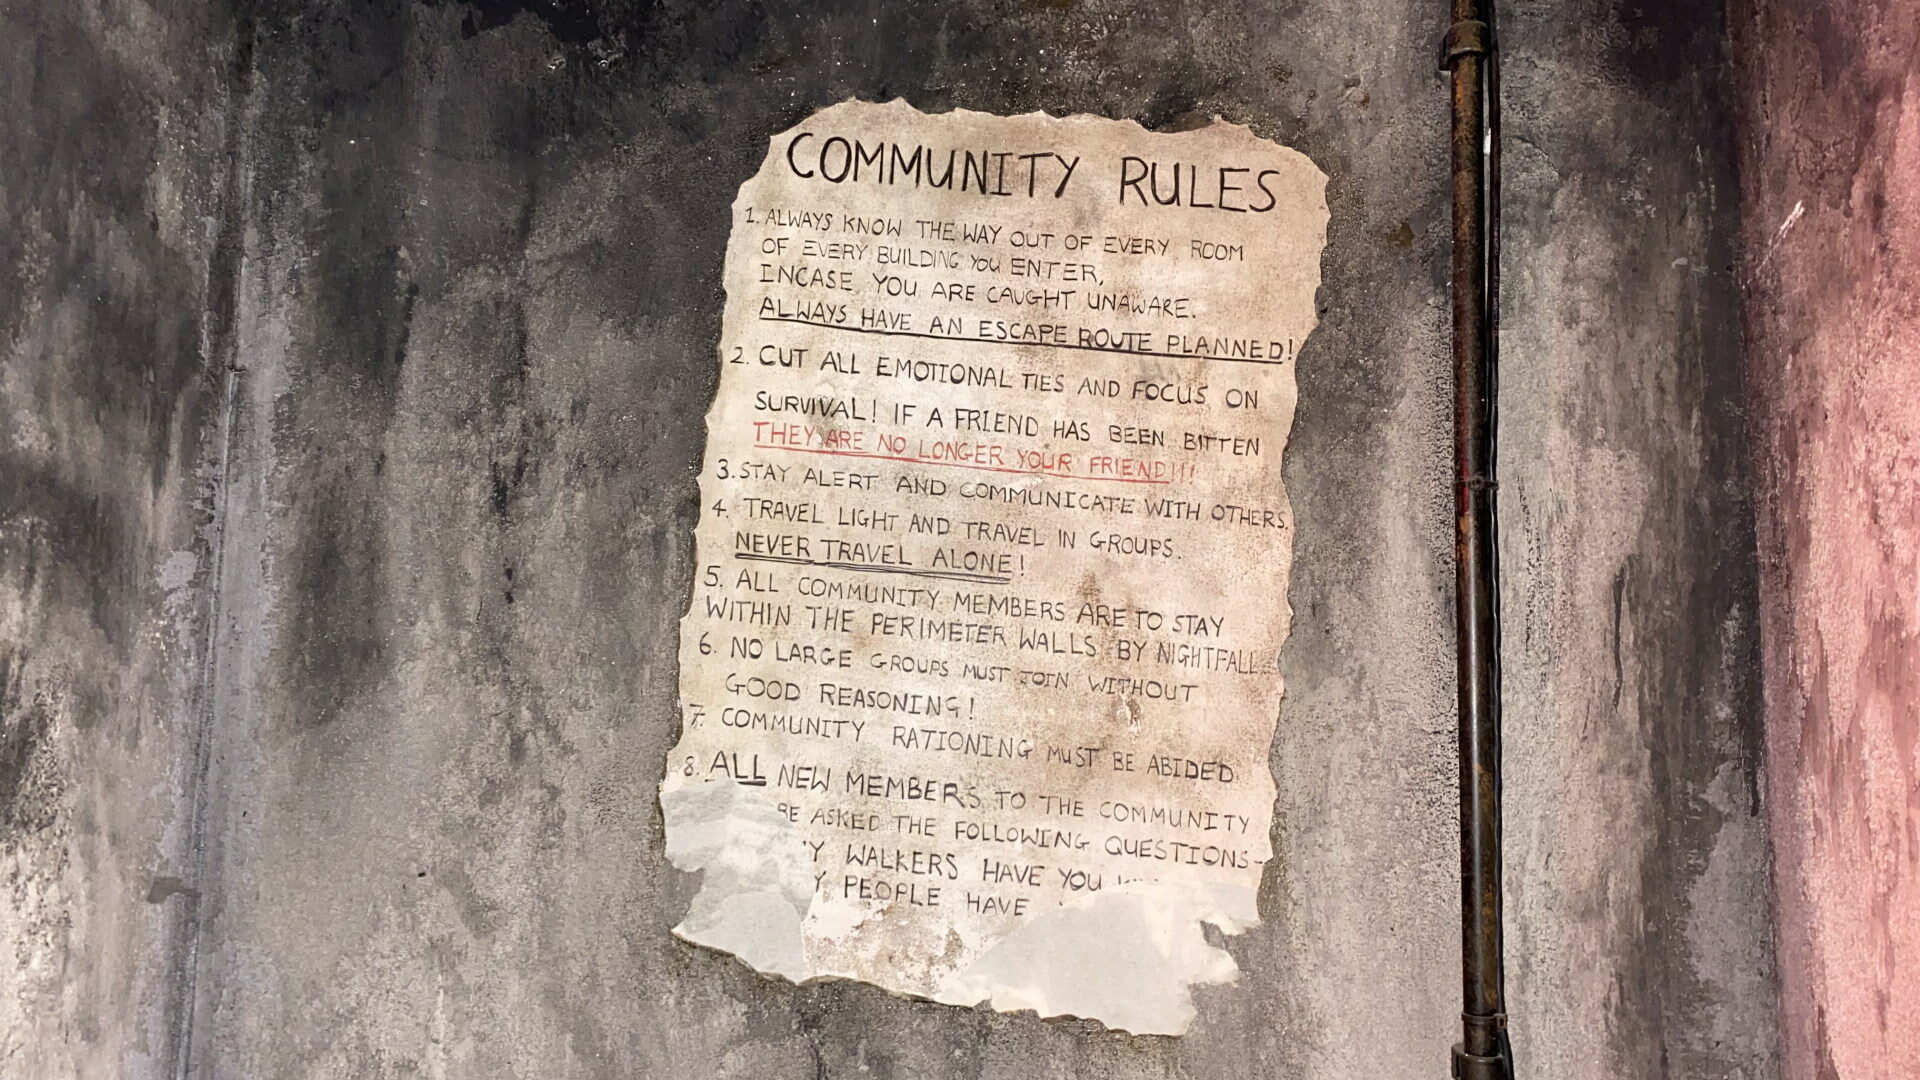 COMMUNITY RULES
1. ALWAYS KNOW THE WAY OUT OF EVERY ROOM
OF EVERY BUILDING YOU ENTER,
INCASE YOU ARE CAUGHT UNAWARE.
ALWAYS HAVE AN ESCAPE ROUTE PLANNED!
2. CUT ALL EMOTIONAL TIES AND FOCUS ON
SURVIVAL! IF A FRIEND HAS BEEN BITTEN
THEY ARE NO LONGER YOUR FRIEND!!!
3. STAY ALERT AND COMMUNICATE WITH OTHERS.
4. TRAVEL LIGHT AND TRAVEL IN GROUPS.
NEVER TRAVEL ALONE!
5. ALL COMMUNITY MEMBERS ARE TO STAY
WITHIN THE PERIMETER WALLS BY NIGHTFALL...
6. NO LARGE GROUPS MUST JOIN WITHOUT
GOOD REASONING!
7. COMMUNITY RATIONING MUST BE ABIDED
8. ALL NEW MEMBERS TO THE COMMUNITY
BE ASKED THE FOLLOWING QUESTIONS-
Y WALKERS HAVE YOU
Y PEOPLE HAVE